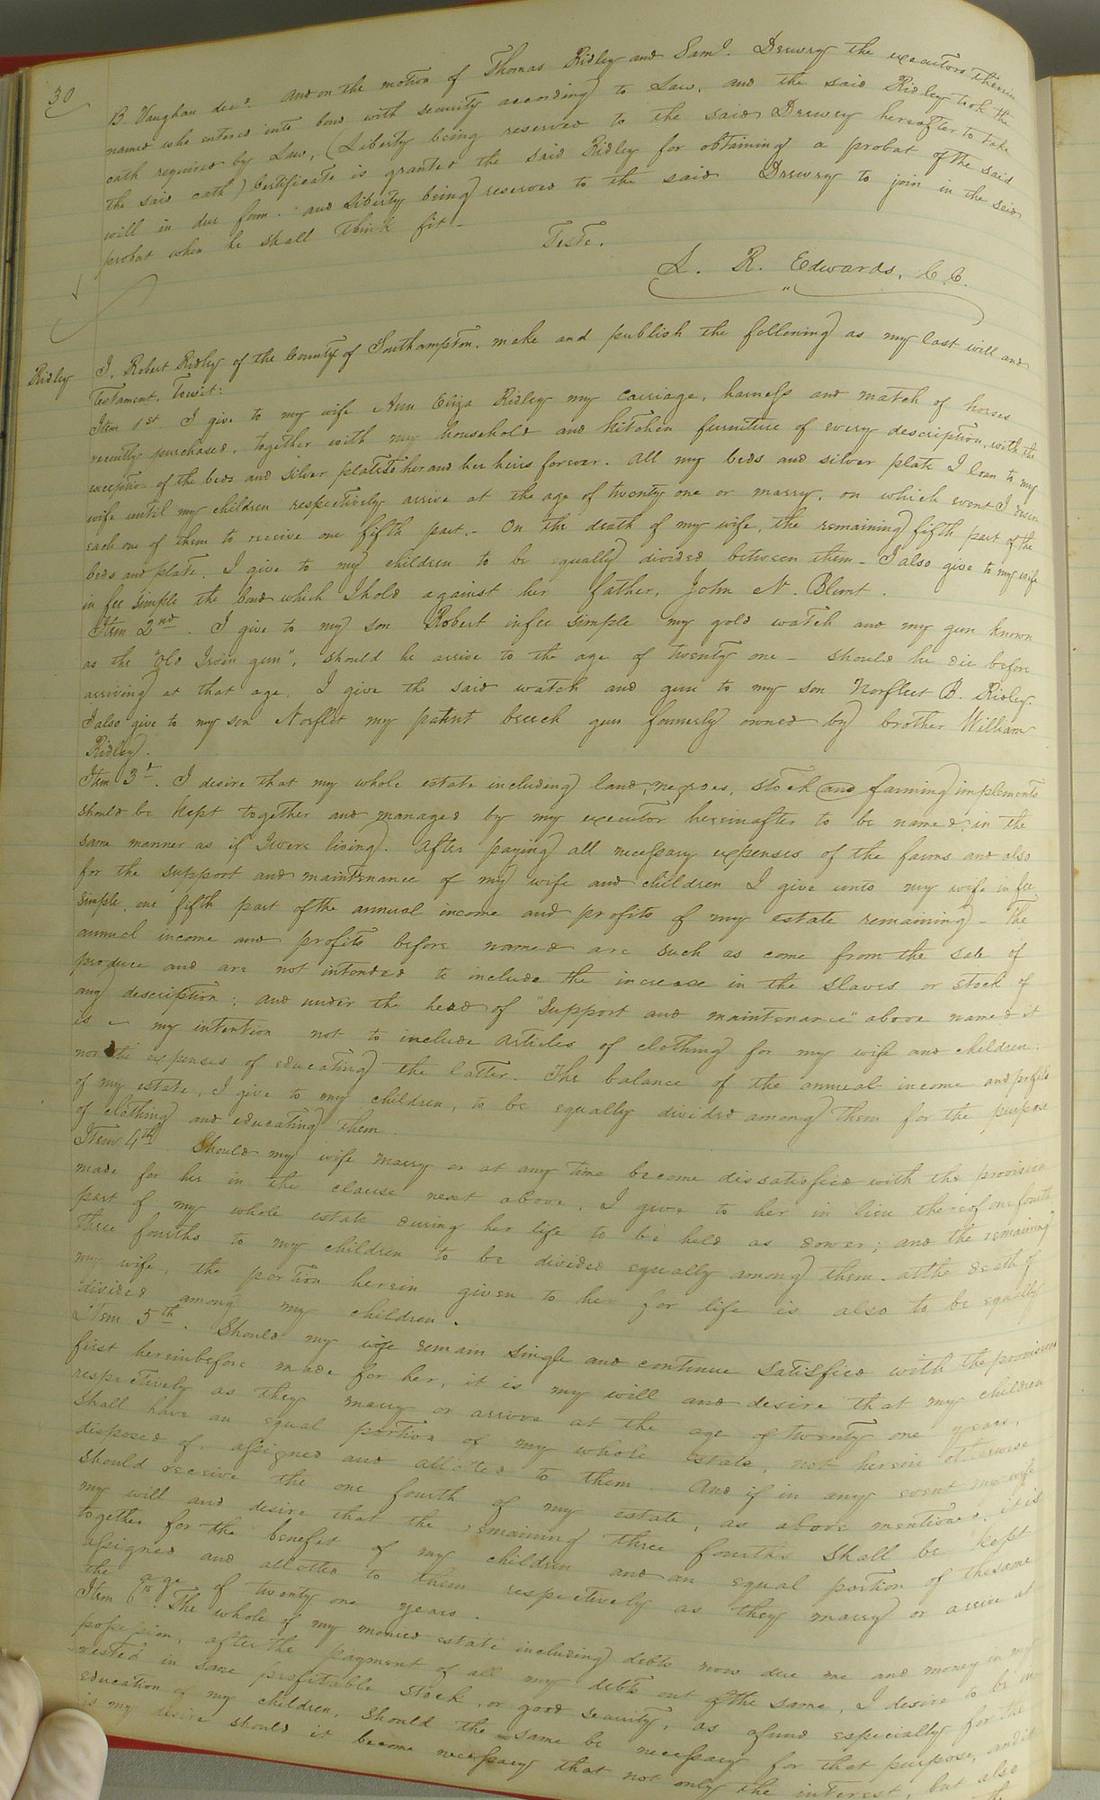 30
B. Vaughan decd. and on the motion of Thomas Ridley and Saml. Drewry the executors therein
named who entered into bond with security according to Law, and the said Ridley took the
oath required by Law, (Liberty being reserved to the said Drewry hereafter to take
the said oath) Certificate is granted the said Ridley for obtaining a probat of the said
will in due form. and Liberty being reserved to the said Drewry to join in the said
probat when he shall think fit -
Teste.
L. R. Edwards, C.C.
Ridley
I, Robert Ridley of the County of Southampton, make and publish the following as my last will and
Testament, Towit:
Item 1st I give to my wife Ann Eliza Ridley my carriage, harness and match of horses
recently purchased, together with my household and kitchen furniture of every description, with the
exception of the beds and silver plate to her and her heirs forever. All my beds and silver plate I loan to my
wife until my children respectively arrive at the age of twenty one or marry, on which event I desire
each one of them to receive one fifth part. - On the death of my wife, the remaining fifth part of the
beds and plate, I give to my children to be equally divided between them - I also give to my wife
in fee simple the bond which I hold against her father, John N. Blunt.
Item 2nd. I give to my son Robert in fee simple my gold watch and my gun known
as the "Old Irvin gun", should he arrive to the age of twenty one - should he die before
arriving at that age, I give the said watch and gun to my son Norfleet B. Ridley.
I also give to my son Norflet my patent breech gun formerly owned by brother William
Ridley.
Item 3d. I desire that my whole estate including land, negroes, stock and farming implements
should be kept together and managed by my executor hereinafter to be named, in the
same manner as if I were living. After paying all necessary expenses of the farms and also
for the support and maintenance of my wife and children I give unto my wife in fee
simple, one fifth part of the annual income and profits of my estate remaining - The
annual income and profits before named are such as come from the sale of
produce and are not intended to include the increase in the slaves or stock of
any description; and under the head of "Support and maintenance" above named it
is my intention not to include articles of clothing for my wife and children,
nor the expenses of educating the latter. The balance of the annual income and profits
of my estate, I give to my children, to be equally divided among them for the purpose
of clothing and educating them.
Item 4th Should my wife marry or at any time become dissatisfied with the provision
made for her in the clause next above, I give to her in lieu thereof one fourth
part of my whole estate during her life to be held as dower; and the remaining
three fourths to my children to be divided equally among them. at the death of
my wife, the portion herein given to her for life is also to be equally
divided among my children.
Item 5th. Should my wife remain single and continue satisfied with the provision
first hereinbefore made for her, it is my will and desire that my children
respectively as they marry or arrive at the age of twenty one years,
shall have an equal portion of my whole estate, not herein otherwise
disposed of, assigned and allotted to them. And if in any event my wife
should receive the one fourth of my estate, as above mentioned, it is
my will and desire that the remaining three fourths shall be kept
together for the benefit of my children and an equal portion of the same
assigned and allotted to them respectively as they marry or arrive at
the age of twenty one years.
Item 6th. The whole of my monied estate including debts now due me and money in my
possession, after the payment of all my debts out of the same, I desire to be in
vested in some profitable stock, or good security, as a fund especially for the
education of my children, should the same be necessary for that purpose, and it
is my desire should it become necessary that not only the interest, but also
the